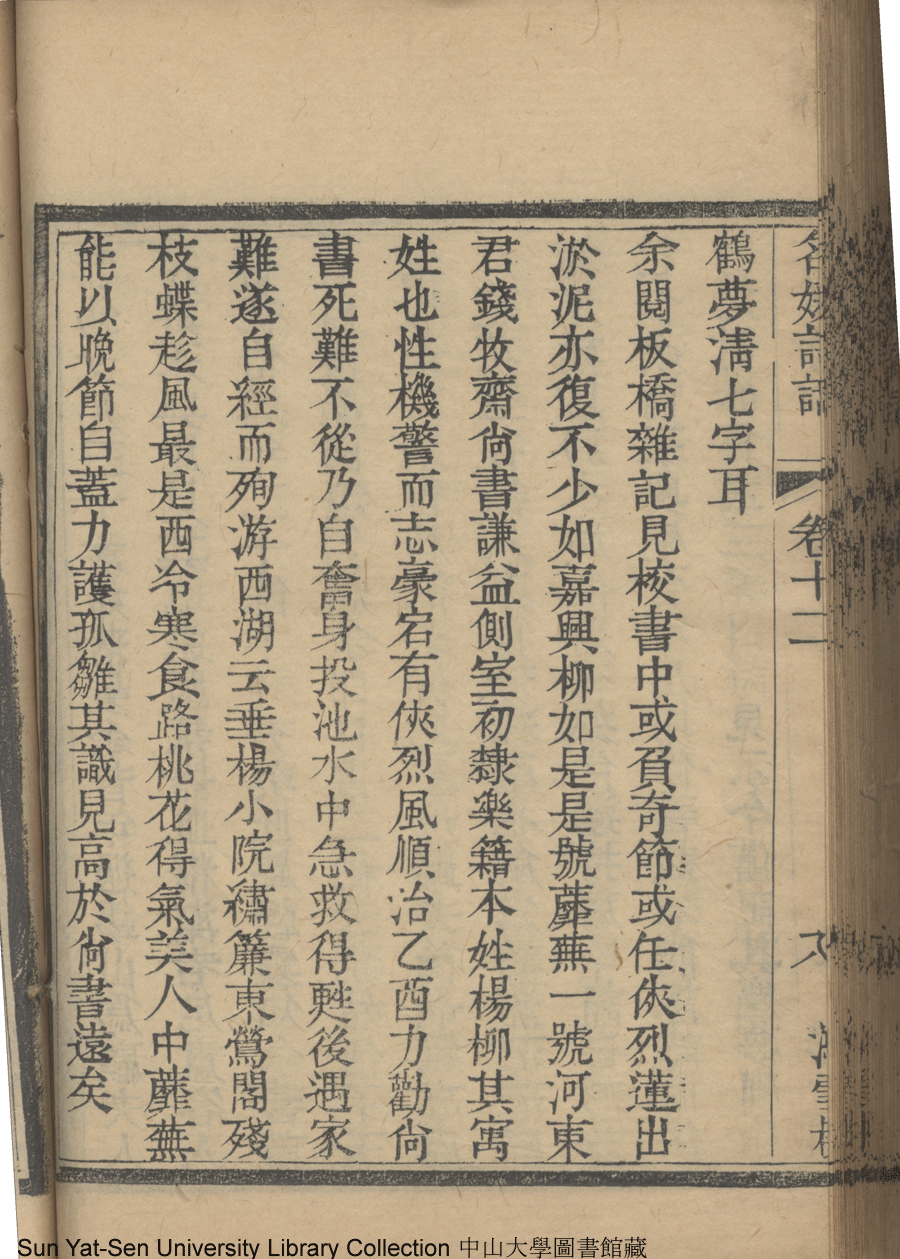 名妓詩話 卷十二 八
鶴夢淸七字耳
余閱板橋雜記見校書中或負奇節或任俠烈蓮出
淤泥亦復不少如嘉興柳如是是號蘼蕪一號河東
君錢牧齋尙書謙益側室初隸樂籍本姓楊柳其寓
姓也性機警而志豪宕有俠烈風順治乙酉力勸尙
書死難不從乃自奮身投池水中急救得甦後遇家
難遂自經而殉游西湖云垂楊小院繡簾東鶯閣殘
枝蝶趁風最是西冷寒食路桃花得氣美人中蘼蕪
能以晚節自蓋力護孤雛其識見高於尙書遠矣
Sun Yat-Sen University Library Collection 中山大學圖書館藏